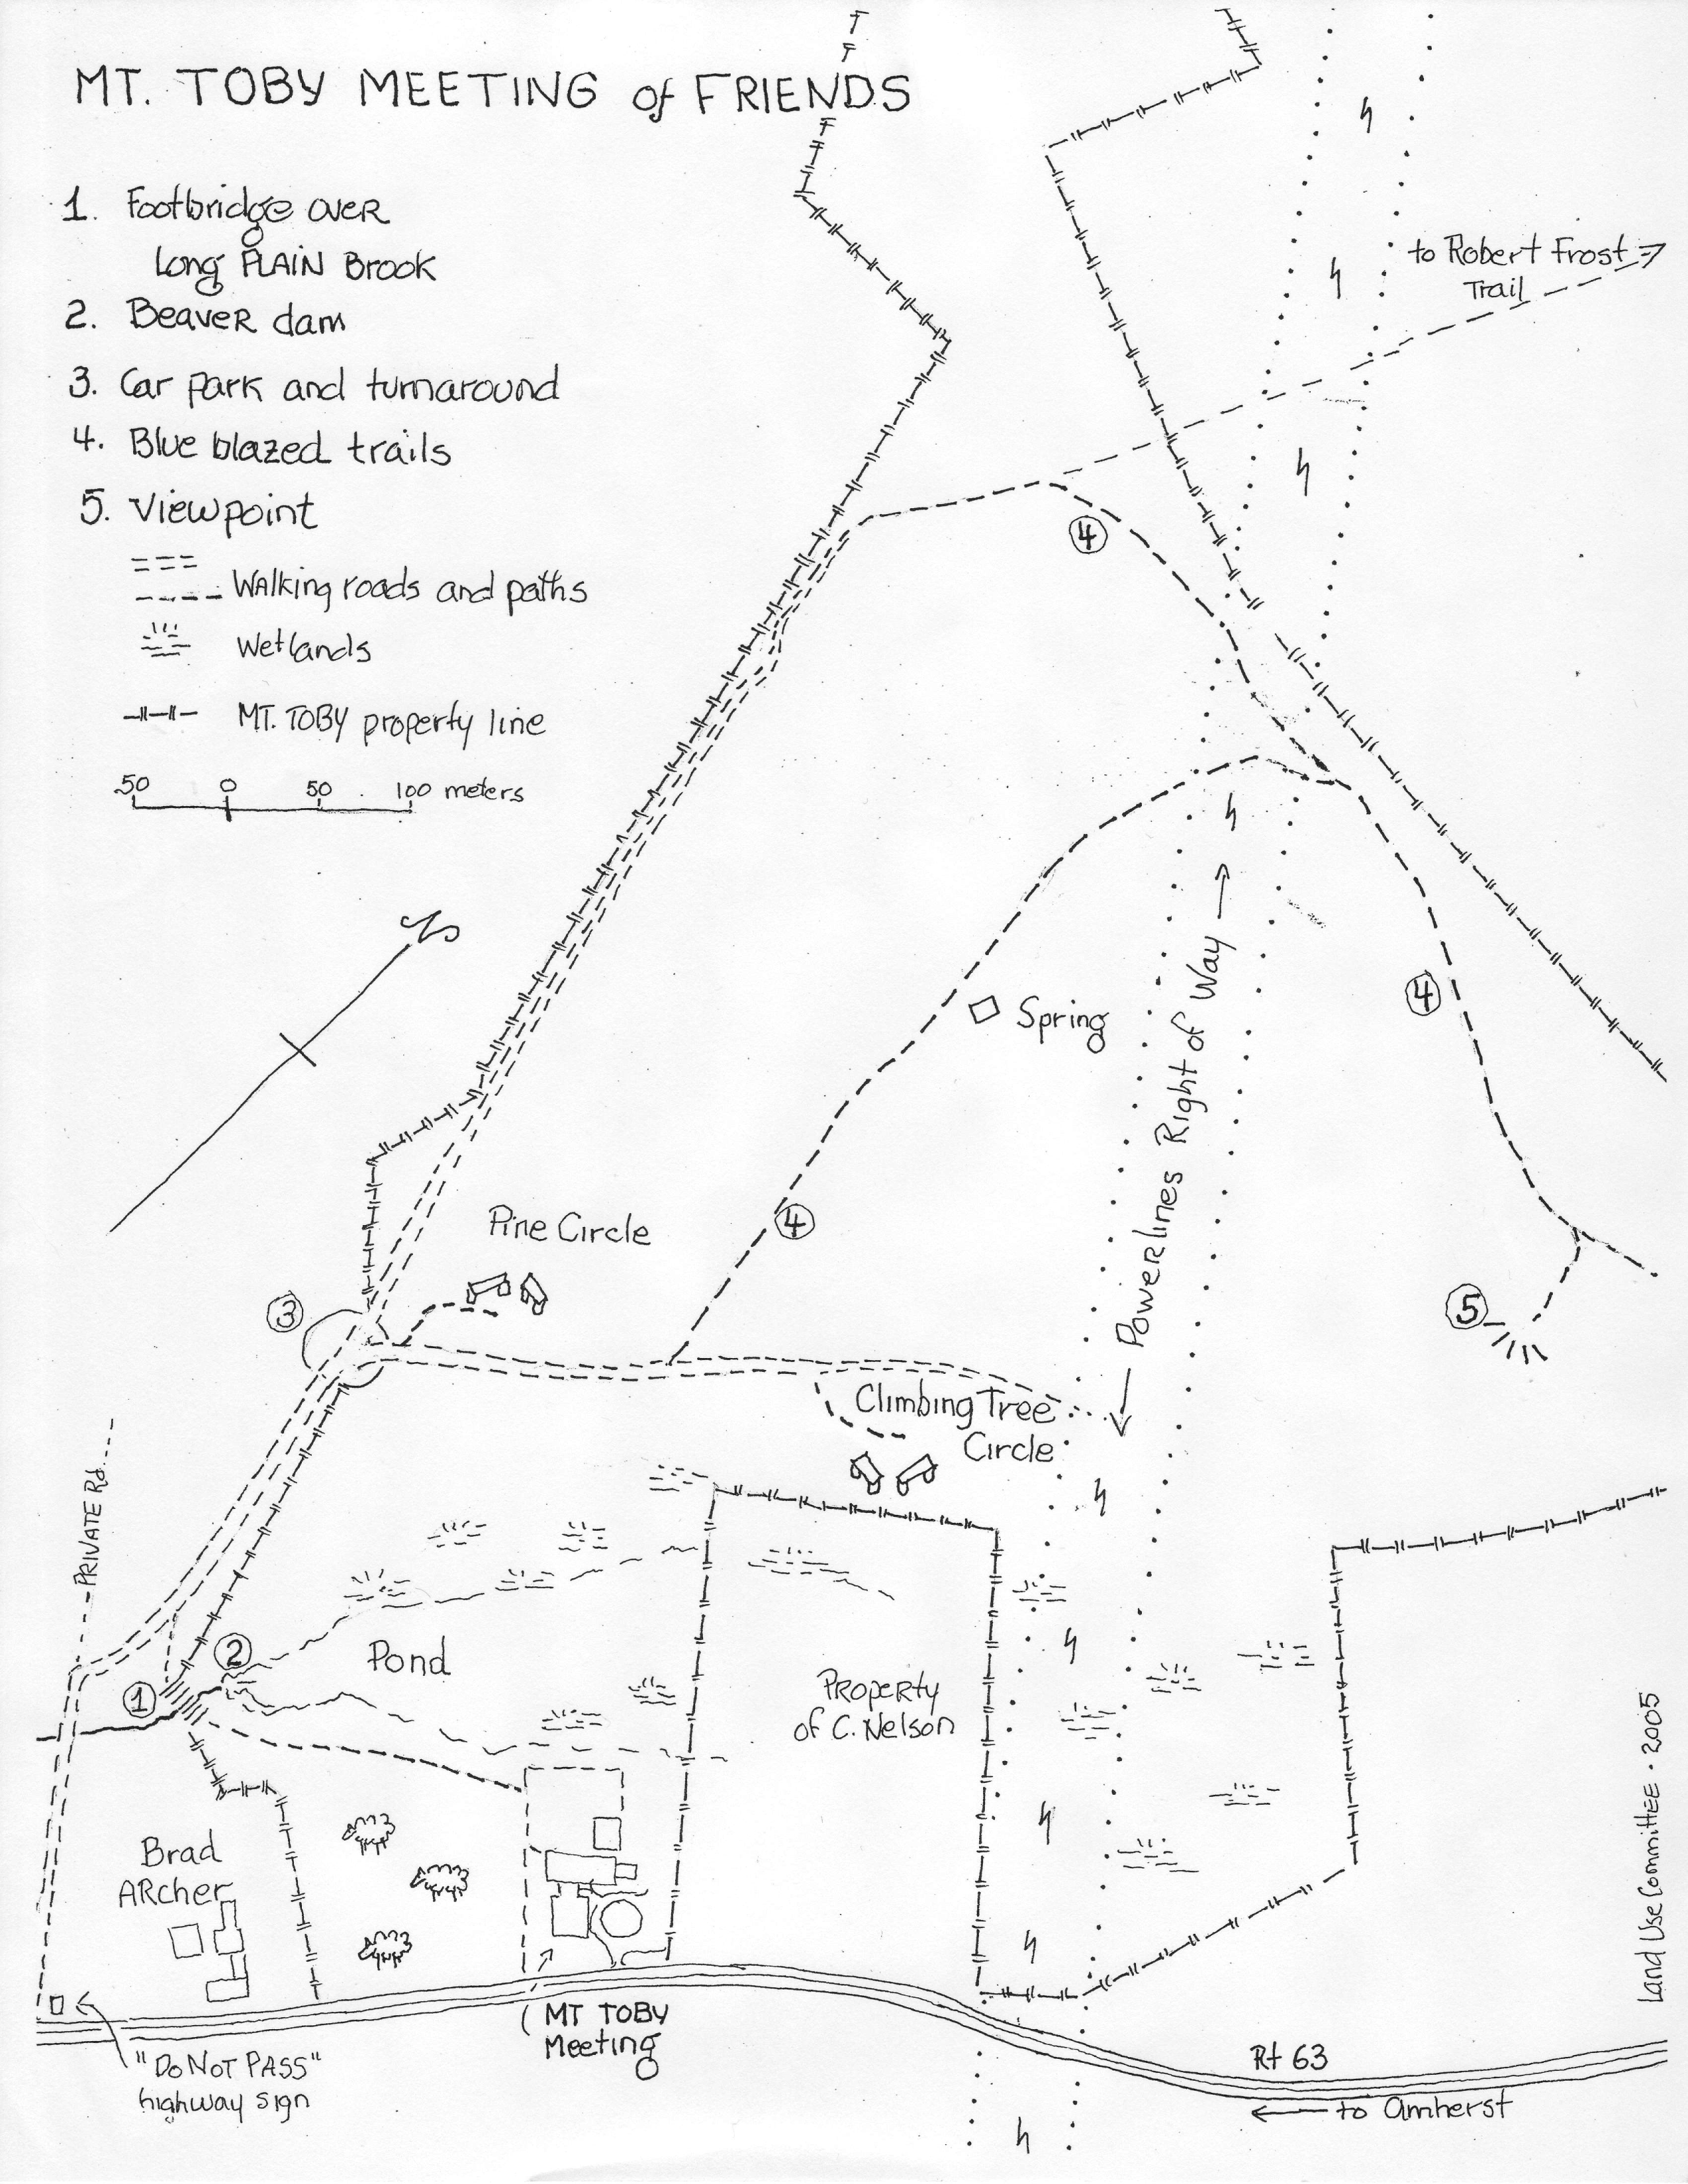 MT. TOBY MEETING of FRIENDS
1. Footbridge over
Long PLAIN Brook
2. Beaver dam
3. Car Park and turnaround
4. Blue blazed trails
5. Viewpoint
Walking roads and paths
Wetlands
MT. TOBY property line
50 0 50 100 meters
N
to Robert Frost
Trail
4
4
Spring
Powerlines Right of Way
Pine Circle
4
3
5
Climbing Tree
Circle
PRIVATE Rd.
2
Pond
1
Property
of C. Nelson
Brad
Archer
MT TOBY
Meeting
"DO NOT PASS"
highway sign
Rt 63
to Amherst
Land Use Committee · 2005